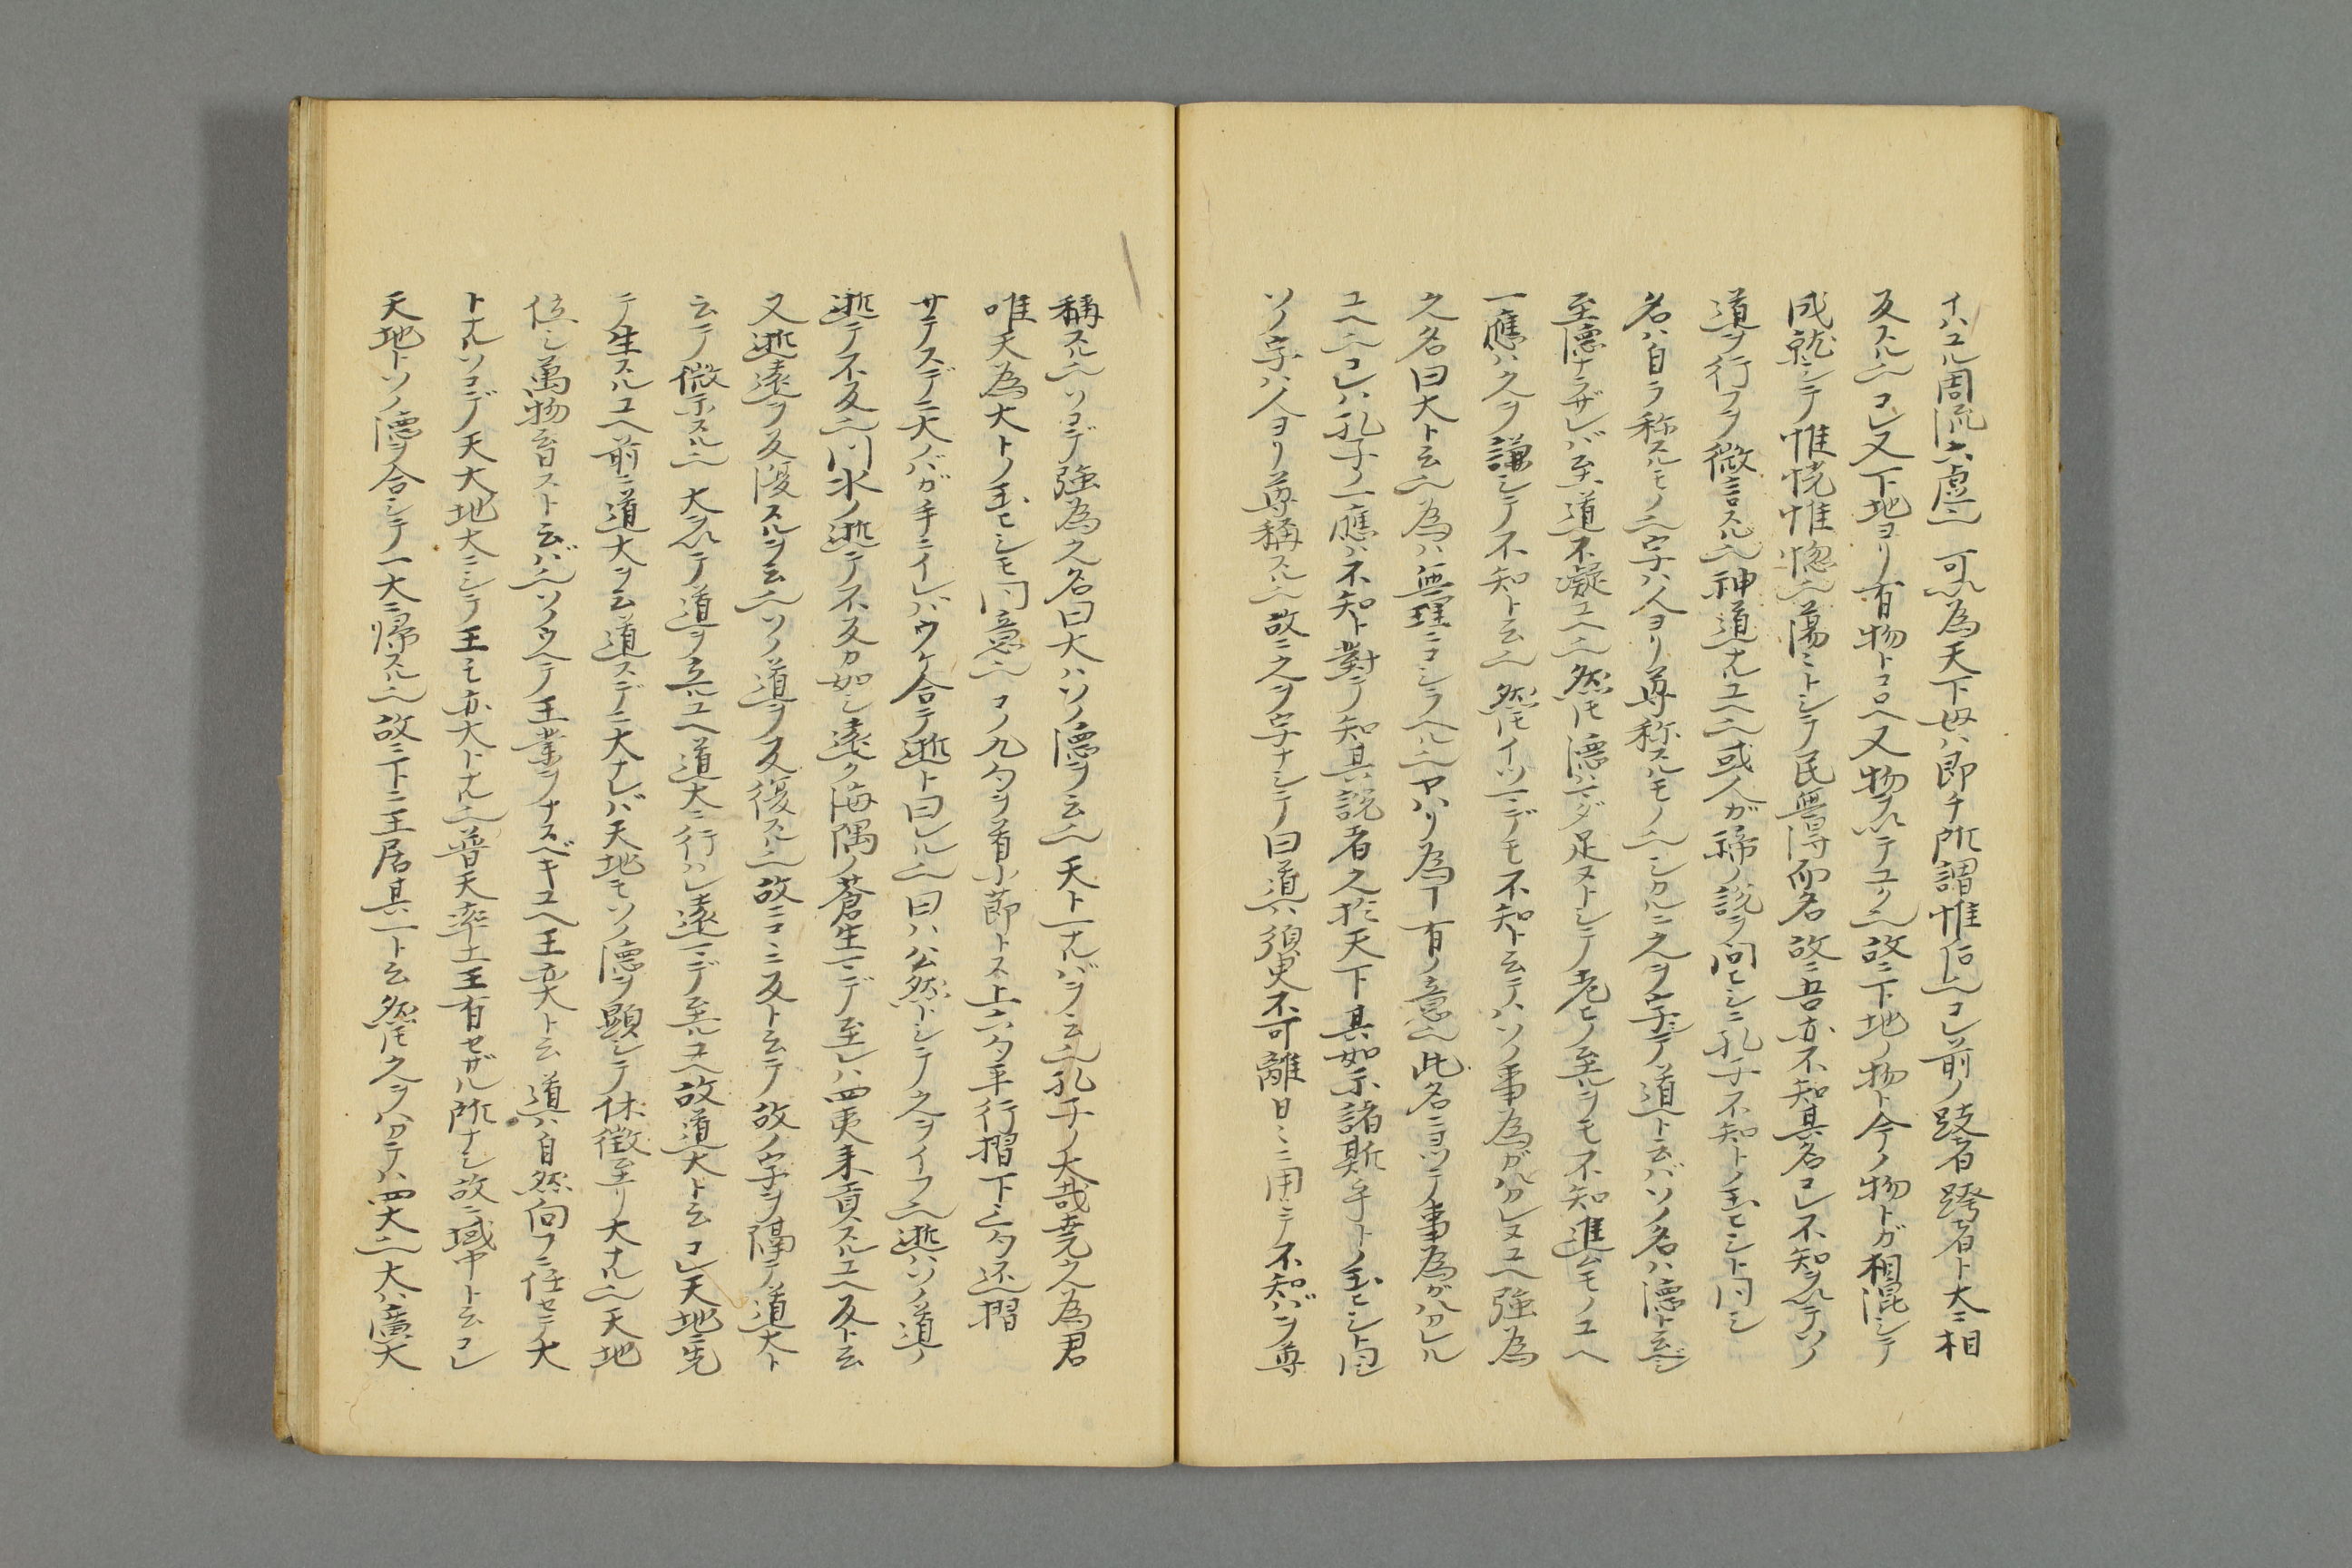 イハユル周流六虚也可以為天下母ハ即チ所謂惟后也コレ前ノ跂者跨者ト大ニ相
反スル也コレ又下地ヨリ有物トコロヘ又物ヲ以テユク也故ニ下地ノ物ト今ノ物トガ相混シテ
成就シテ惟恍惟惚也蕩〻トシテ民無得而名故ニ吾亦不知其名コレ不知ヲ以テソノ
道ヲ行フヲ微言スル也神道ナルユヘ也或人ガ禘ノ説ヲ問ヒシニ孔子不知トノ玉ヒシト同シ
名ハ自ラ称スルモノ也字ハ人ヨリ尊称スルモノ也シカルニ之ヲ字シテ道ト云バソノ名ハ徳ト云ベシ
至徳ナラザレバ至道不凝ユヘ也然𪜈徳ハマダ足ヌトシテ老ヒノ至ルヲモ不知進ムモノユヘ
一應ハ之ヲ謙シテ不知ト云也然𪜈イツマデモ不知ト云テハソノ事為ガ分レヌユヘ強為
之名曰大ト云也為ハ無理ニコシラヘル也ヤハリ為ヿ有ノ意也此名ニヨツテ事為ガ分レル
ユヘ也コレハ孔子ノ一應ハ不知ト對テ知其説者之於天下其如示諸斯乎トノ玉ヒシト同シ
ソノ字ハ人ヨリ尊稱スル也故ニ之ヲ字ナシテ曰道ハ須臾不可離日〻ニ用ニテ不知バヲ尊
稱スル也ソコデ強為之名曰大ハソノ徳ヲ云也天ト一ナルバヲ云也孔子ノ大哉堯之為君
唯天為大トノ玉ヒシモ同意也コノ九句ヲ首小節トス上六句平行摺下三句逐摺
サテスデニ大ノバガ手ニイレバウケ合テ逝ト曰レル也曰ハ公然トシテ之ヲイフ也逝ハソノ道ノ
逝テ不反也川水ノ逝テ不反カ如シ遠ク海隅ノ蒼生マデ至レハ四夷来貢スルユヘ反ト云
又逝遠ヲ反復スルヲ云也ソノ道ヲ反復スル也故ニココニ反ト云テ故ノ字ヲ隔テ道大ト
云テ微示スル也大ヲ以テ道ヲ立ルユヘ道大ニ行ハレ遠マデ至ルユヘ故道大ト云コレ天地ニ先
テ生スルユヘ前ニ道大ヲ云道スデニ大ナレバ天地モソノ徳ヲ顕シテ休徴至リ大ナル也天地
位シ萬物育ストハ云バ也ソノウヘテ王業ヲナスベキユヘ王亦大ト云道ハ自然向フニ任セテ大
トナルソコデ天大地大ニシテ王モ亦大トナル也普天率土王有セザル所ナシ故ニ域中ト云コレ
天地トソノ徳ヲ合シテ一大ニ帰スル也故ニ下ニ王居其一ト云然𪜈之ヲ分テハ四大也大ハ廣大